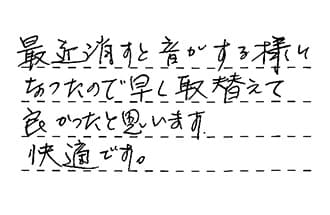 最近消すと音がする様に
なったので早く取替えて
良かったと思います
快適です。